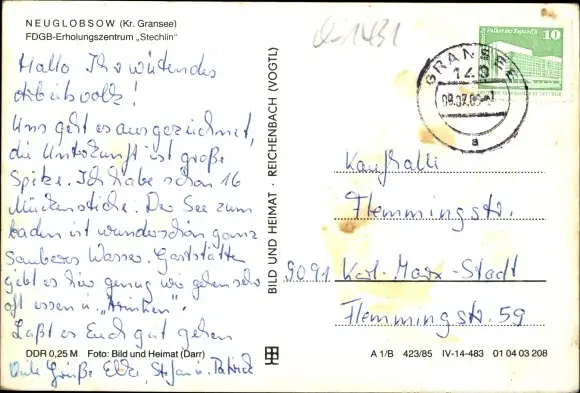 NEUGLOBSOW (Kr. Gransee)
FDGB-Erholungszentrum „Stechlin"
Hallo Ihr wütendes
Arbeitsvolk!
Uns geht es ausgezeichnet,
die Unterkunft ist große
Spitze. Ich habe schon 16
Mückenstiche. Der See zum
baden ist wunderschön ganz
sauberes Wasser. Gaststätten
gibt es hier genug wir gehen sehr
oft essen u. „trinken".
Laßt es Euch gut gehen
DDR 0,25 M Foto: Bild und Heimat (Darr)
Viele Grüße Elke, Stefan u. Patrick
BILD UND HEIMAT · REICHENBACH (VOGTL)
1431
Palast der Republik
10
GRANSEE
140
a
Kaufhalle
Flemmingstr.
9091 Karl-Marx-Stadt
Flemmingstr. 59
A 1/B 423/85 IV-14-483 01 04 03 208